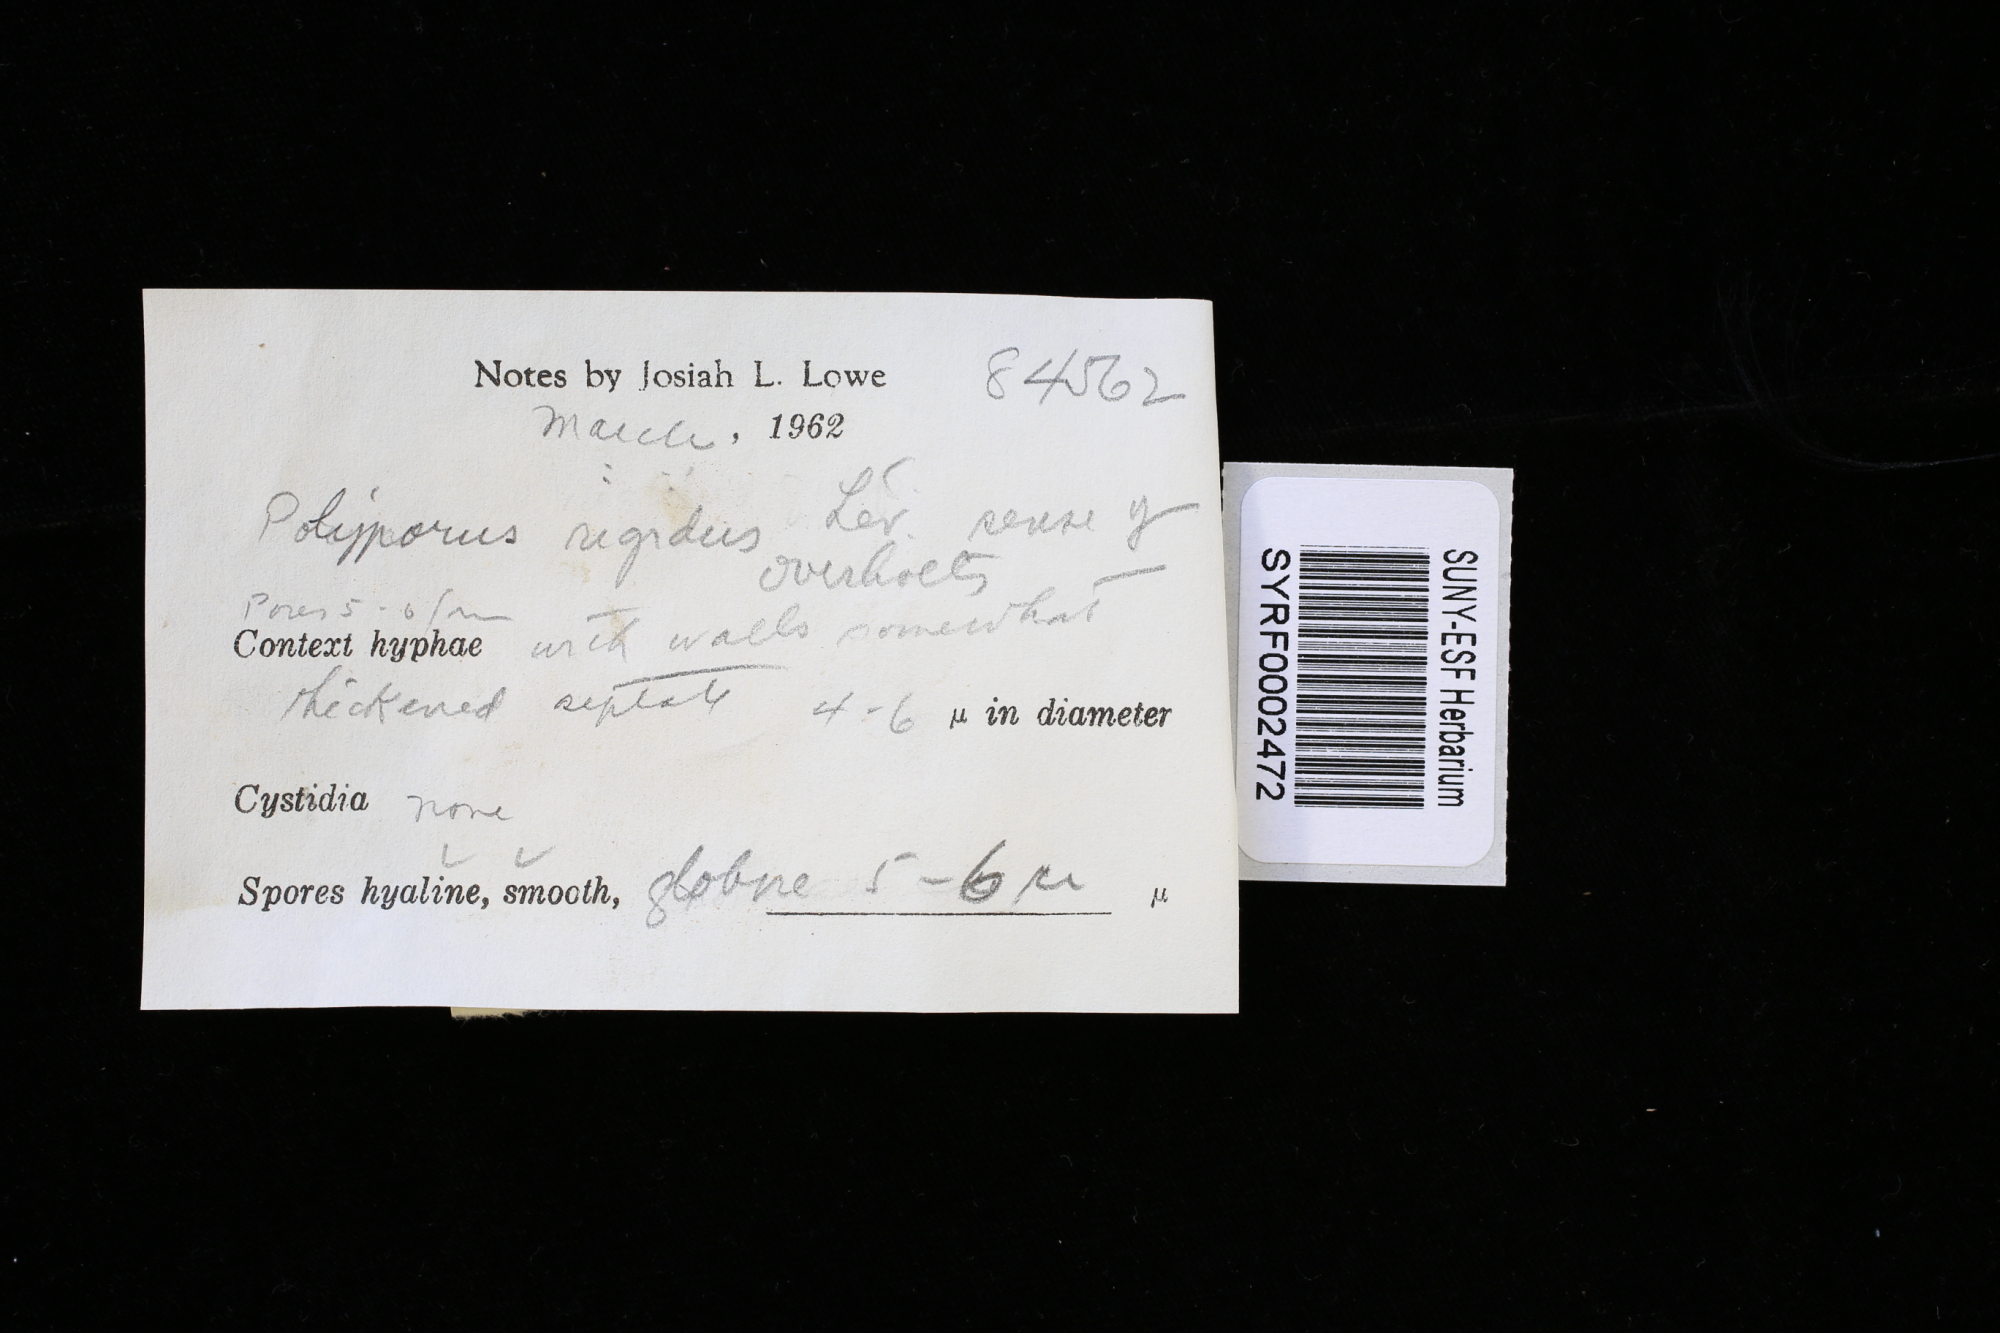 Notes by Josiah L. Lowe 84562
March, 1962
Polyporus rigidus Lév. sense of
Overholts
Pores 5-6/mm
Context hyphae with walls somewhat
thickened septate 4-6 µ in diameter
Cystidia none
Spores hyaline, smooth, globose 5-6 µ µ
SUNY-ESF Herbarium
SYRF0002472